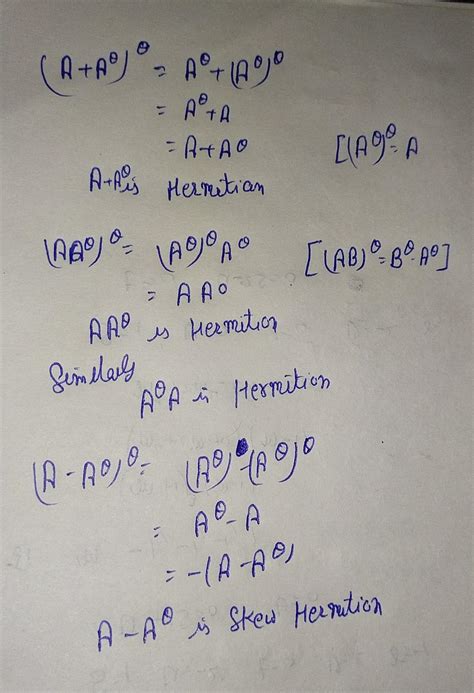 (A+A^θ)^θ = A^θ+(A^θ)^θ
= A^θ+A
= A+A^θ [(A^θ)^θ=A
A+A^θ is Hermitian
(AA^θ)^θ= (A^θ)^θ A^θ [(AB)^θ=B^θ·A^θ]
= AA^θ
AA^θ is Hermition
Similarly
A^θA is Hermition
(A-A^θ)^θ= (A^θ)-(A^θ)^θ
= A^θ-A
= -(A-A^θ)
A-A^θ is Skew Hermition